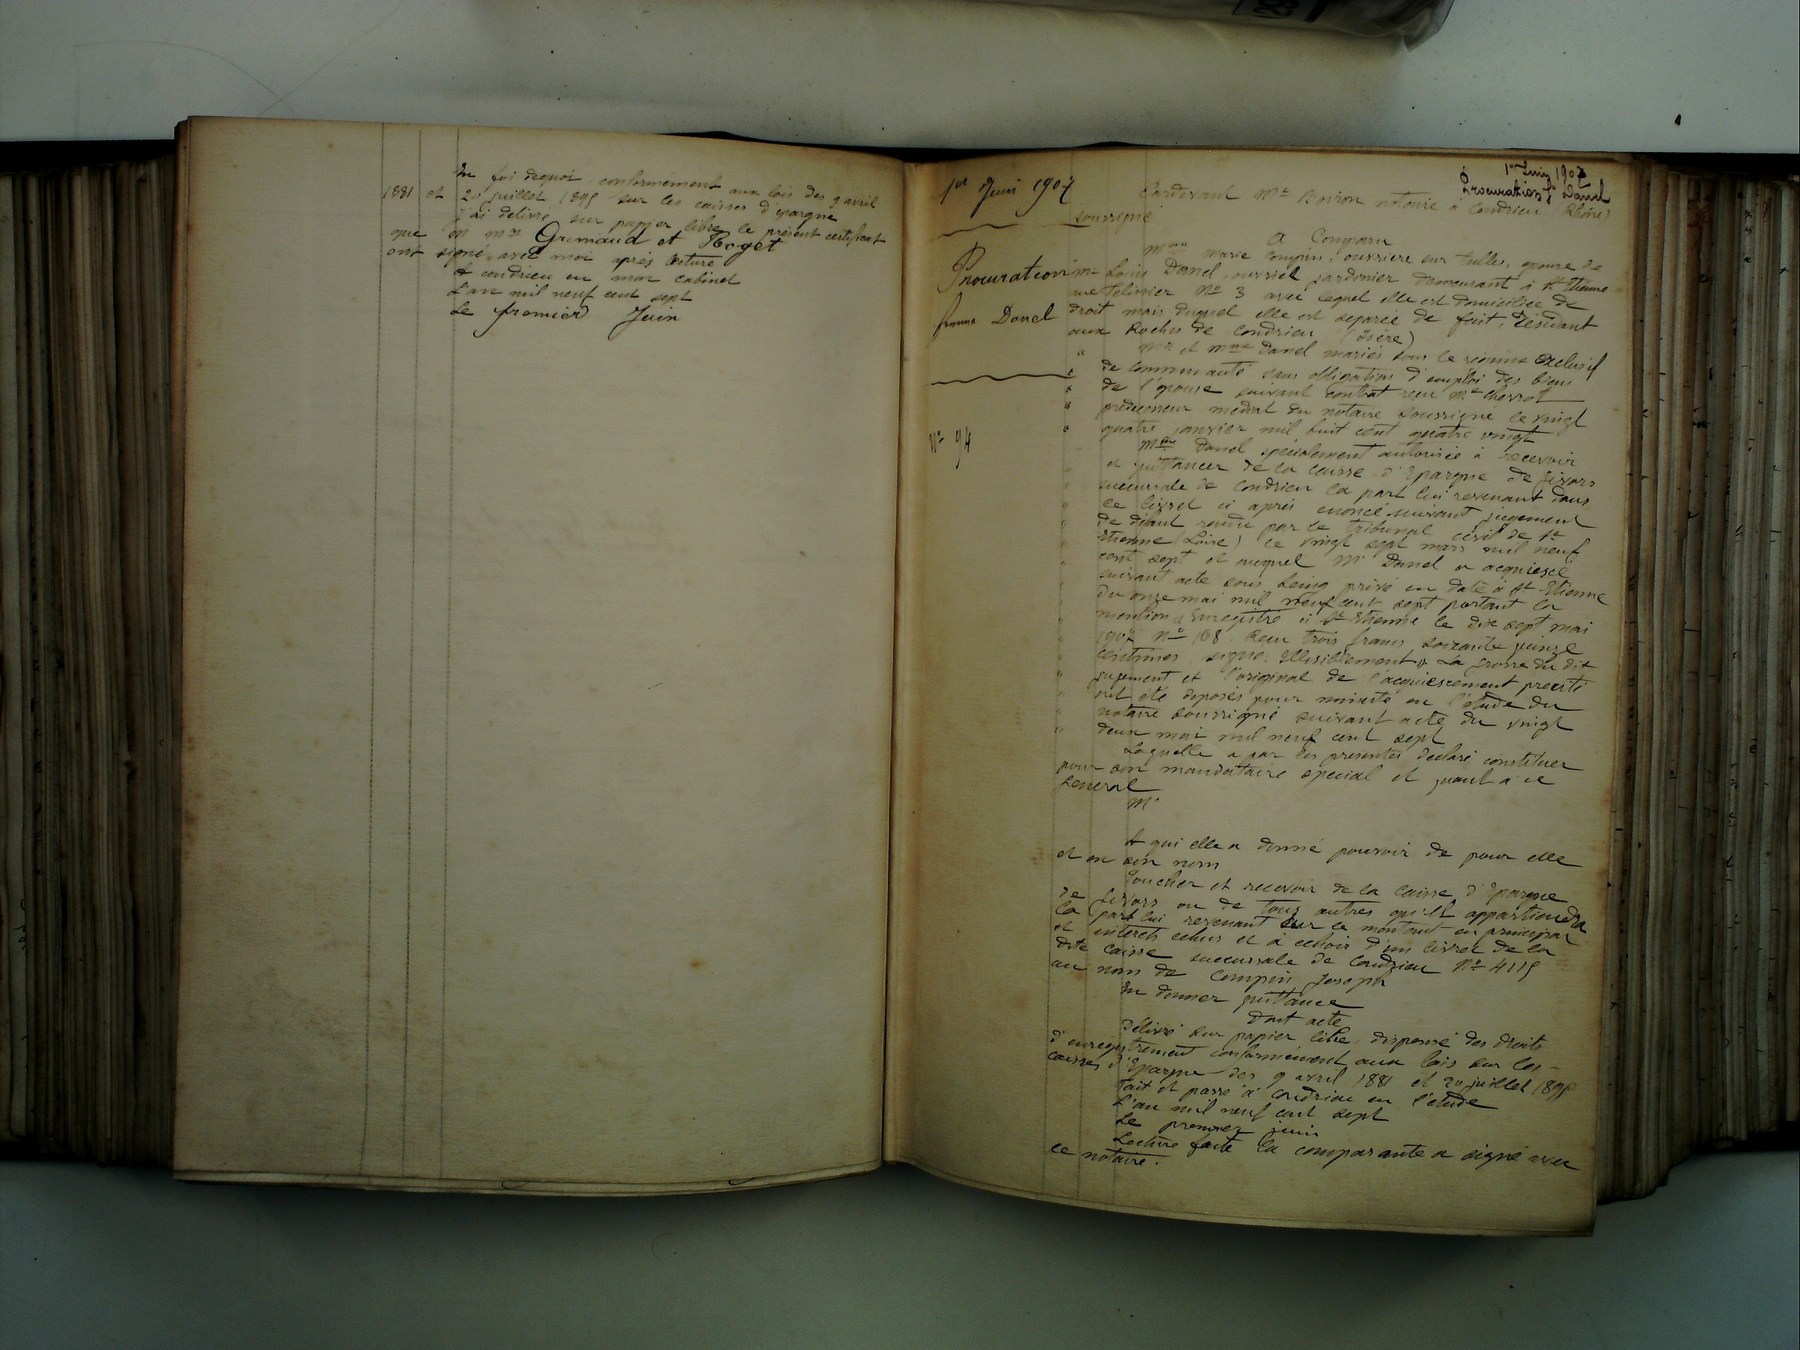 En foi de quoi, conformément aux lois des 9 avril
1881 et 20 juillet 1895 sur les caisses d'épargne
j'ai délivré sur papier libre le présent certificat
que M Mrs Grimaud et Roget
ont signé avec moi après lecture
A Condrieu en mon cabinet
L'an mil neuf cent sept
Le premier Juin
1er Juin 1907
Procuration
femme Danel
No 94
1er Juin 1907
Procuration f Danel
Pardevant Me Boiron notaire à Condrieu (Rhône)
soussigné
A Comparu
Mme Marie Compin, ouvrière sur tulles, épouse de
Mr Louis Danel ouvrier jardinier demeurant à St Etienne
rue Pélissier No 3 avec lequel elle est domiciliée de
droit mais duquel elle est séparée de fait, résidant
aux Roches de Condrieu (Isère)
Mr et Mme Danel mariés sous le régime exclusif
de communauté sans obligation d'emploi des biens
de l'épouse suivant contrat reçu Me
prédécesseur médiat du notaire soussigné le vingt
quatre janvier mil huit cent quatre vingt
Mme Danel spécialement autorisée à recevoir
et quittancer de la caisse d'Epargne de Givors
succursale de Condrieu la part lui revenant dans
le livret ci après énoncé suivant jugement
de défaut rendu par le tribunal civil de St
Etienne (Loire) le vingt sept mars mil neuf
cent sept et auquel Mr Danel a acquiescé
suivant acte sous seing privé en date à St Etienne
du onze mai mil neuf cent sept portant la
mention "Enregistré à St Etienne le dix sept mai
1907 No 108 Reçu trois francs soixante quinze
centimes, signé: illisiblement". La grosse du dit
jugement et l'original de l'acquiescement précité
ont été déposés pour minute en l'étude du
notaire soussigné suivant acte du vingt
deux mai mil neuf cent sept
Laquelle a par les présentes déclaré constituer
pour son mandataire spécial et quant à ce
général
Mr
A qui elle a donné pouvoir de pour elle
et en son nom
Toucher et recevoir de la caisse d'Epargne
de Givors ou de tous autres qu'il appartiendra
la part lui revenant sur le montant en principal
et intérêts échus et à échoir d'un livret de la
dite caisse succursale de Condrieu No 4115
au nom de Compin Joseph
En donner quittance
Dont acte
Délivré sur papier libre, dispensé des droits
d'enregistrement conformément aux lois sur les
caisses d'Epargne des 9 avril 1881 et 20 juillet 1895
Fait et passé à Condrieu en l'étude
L'an mil neuf cent sept
Le premier juin
Lecture faite la comparante a signé avec
le notaire.